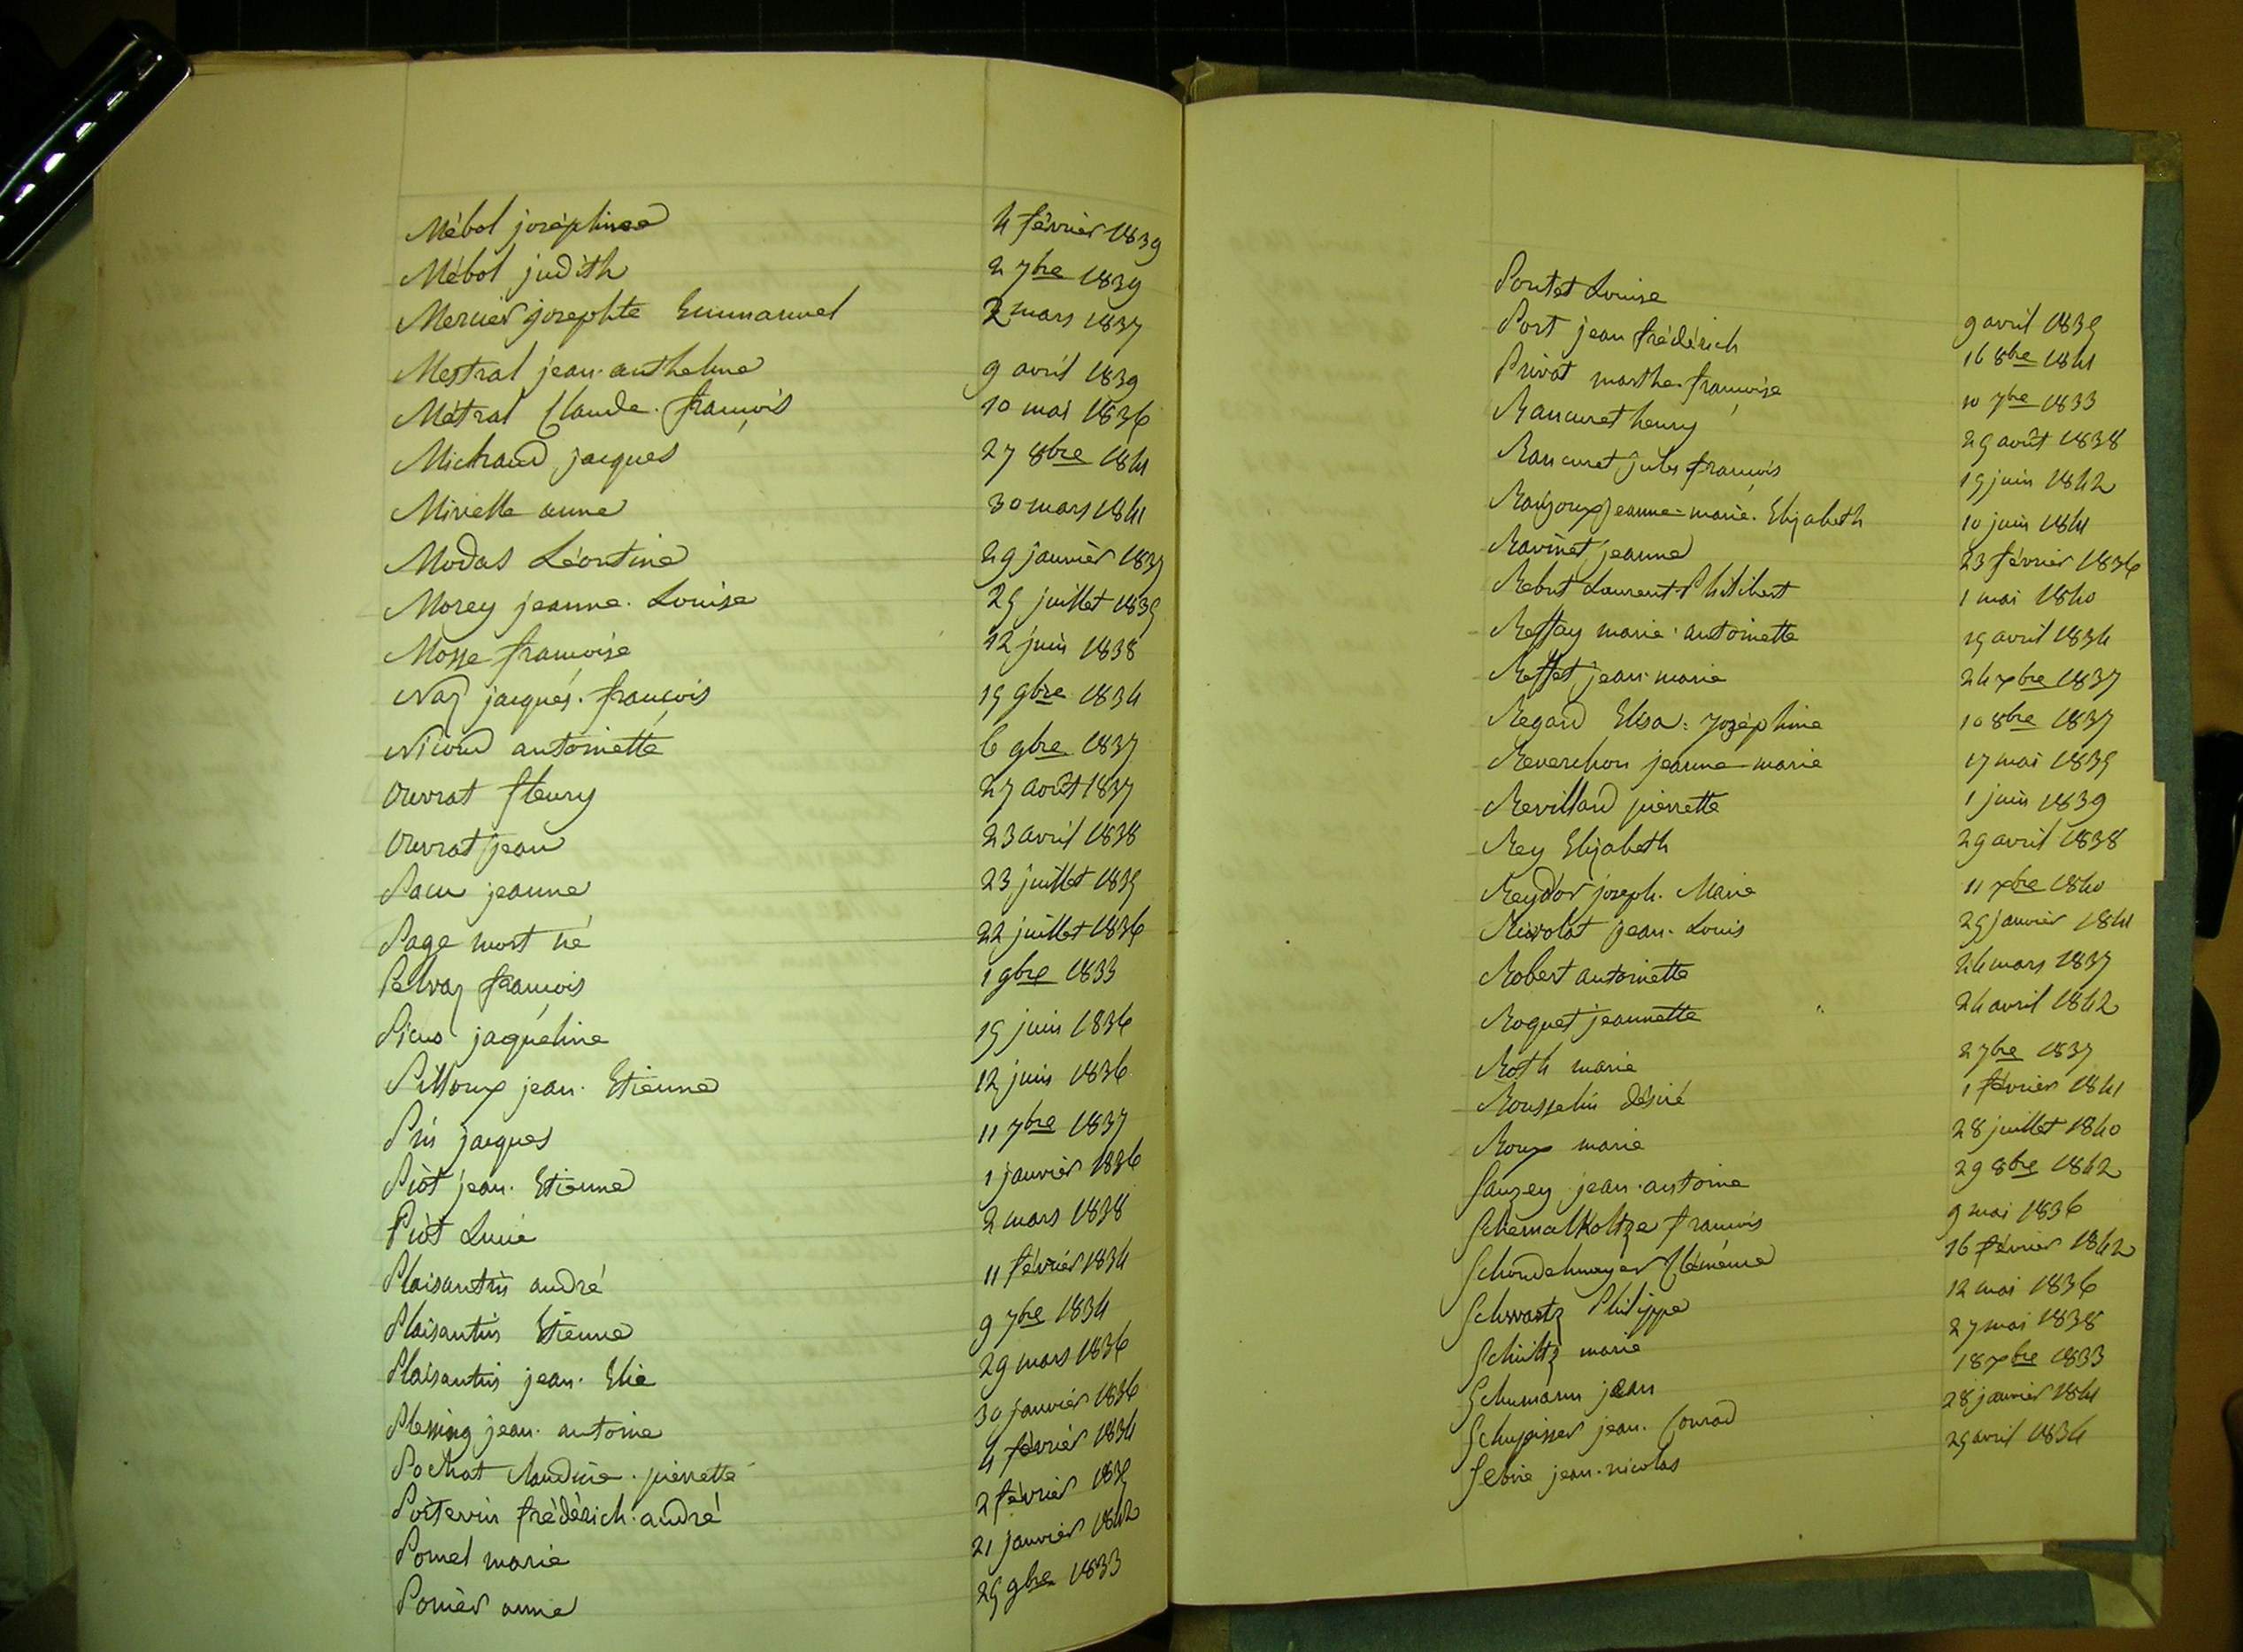 Mébol joséphine 4 février 1839
Mébol judith 2 7bre 1839
Mercier josephte Emmanuel 2 mars 1837
Mestral jean-anthelme 9 avril 1839
Métral Claude-françois 10 mai 1836
Michaud jacques 27 8bre 1841
Mivelle anne 30 mars 1841
Modas Léontine 29 janvier 1837
Morey jeanne-Louise 25 juillet 1835
Mosse françoise 12 juin 1838
Naz jacques-françois 15 9bre 1834
Nicoud antoinette 6 9bre 1837
Ouvrat fleury 27 août 1837
Ouvrat jean 23 avril 1838
Pacu jeanne 23 juillet 1835
Page mort né 22 juillet 1836
Pelvaz françois 1 9bre 1833
Picus jaquéline 15 juin 1836
Pilloux jean-Etienne 12 juin 1836
Pin jacques 11 7bre 1837
Piôt jean-Etienne 1 janvier 1836
Piôt Lucie 2 mars 1838
Plaisantin andré 11 février 1834
Plaisantin Etienne 9 7bre 1834
Plaisantin jean-Elie 29 mars 1836
Plessing jean-antoine 30 janvier 1836
Pochat claudine-pierrette 4 février 1834
Poitevin frédérich-andré 2 février 1835
Pomel marie 21 janvier 1842
Ponier anne 25 9bre 1833
Pontet Louise 9 avril 1835
Port jean frédérich 16 8bre 1841
Privat marthe-françoise 10 7bre 1833
Rancuret henry 25 août 1838
Rancuret jules françois 15 juin 1842
Ranjoux jeanne-marie-Elizabeth 10 juin 1841
Ravinet jeanne 23 février 1836
Rebut Laurent-Philibert 1 mai 1840
Reffay marie-antoinette 15 avril 1834
Reffet jean-marie 24 xbre 1837
Regard Elisa-Joséphine 10 8bre 1837
Reverchon jeanne-marie 17 mai 1835
Revillard pierrette 1 juin 1839
Rey Elizabeth 29 avril 1838
Reydor joseph-Marie 11 xbre 1840
Rivolat jean-Louis 25 janvier 1841
Robert antoinette 24 mars 1837
Roguet jeannette 24 avril 1842
Roth marie 2 7bre 1837
Rousselin désiré 1 février 1841
Roux marie 28 juillet 1840
Sauzey jean-antoine 29 8bre 1842
Schemalkoltze françois 9 mai 1836
Schondelmayer Clémence 16 février 1842
Schwartz Philippe 12 mai 1836
Schultz marie 27 mai 1838
Schumann jean 18 xbre 1833
Schupisser jean-Conrad 28 janvier 1841
Sebire jean-nicolas 25 avril 1834